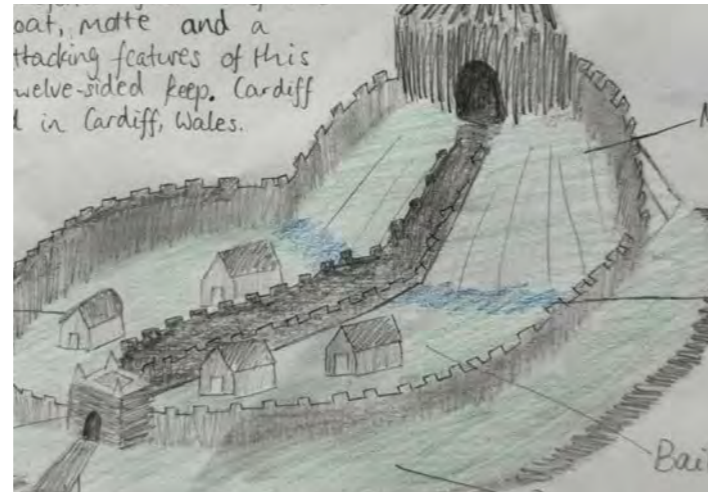 oat, motte and a
ttacking features of this
welve-sided keep. Cardiff
d in Cardiff, Wales.
M
Bai